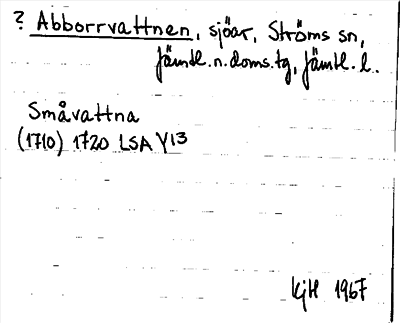 ? Abborrvattnen, sjöar, Ströms sn,
Jämtl. n. doms. tg, Jämtl. l.
Småvattna
(1710) 1720 LSA Y13
KjH 1967